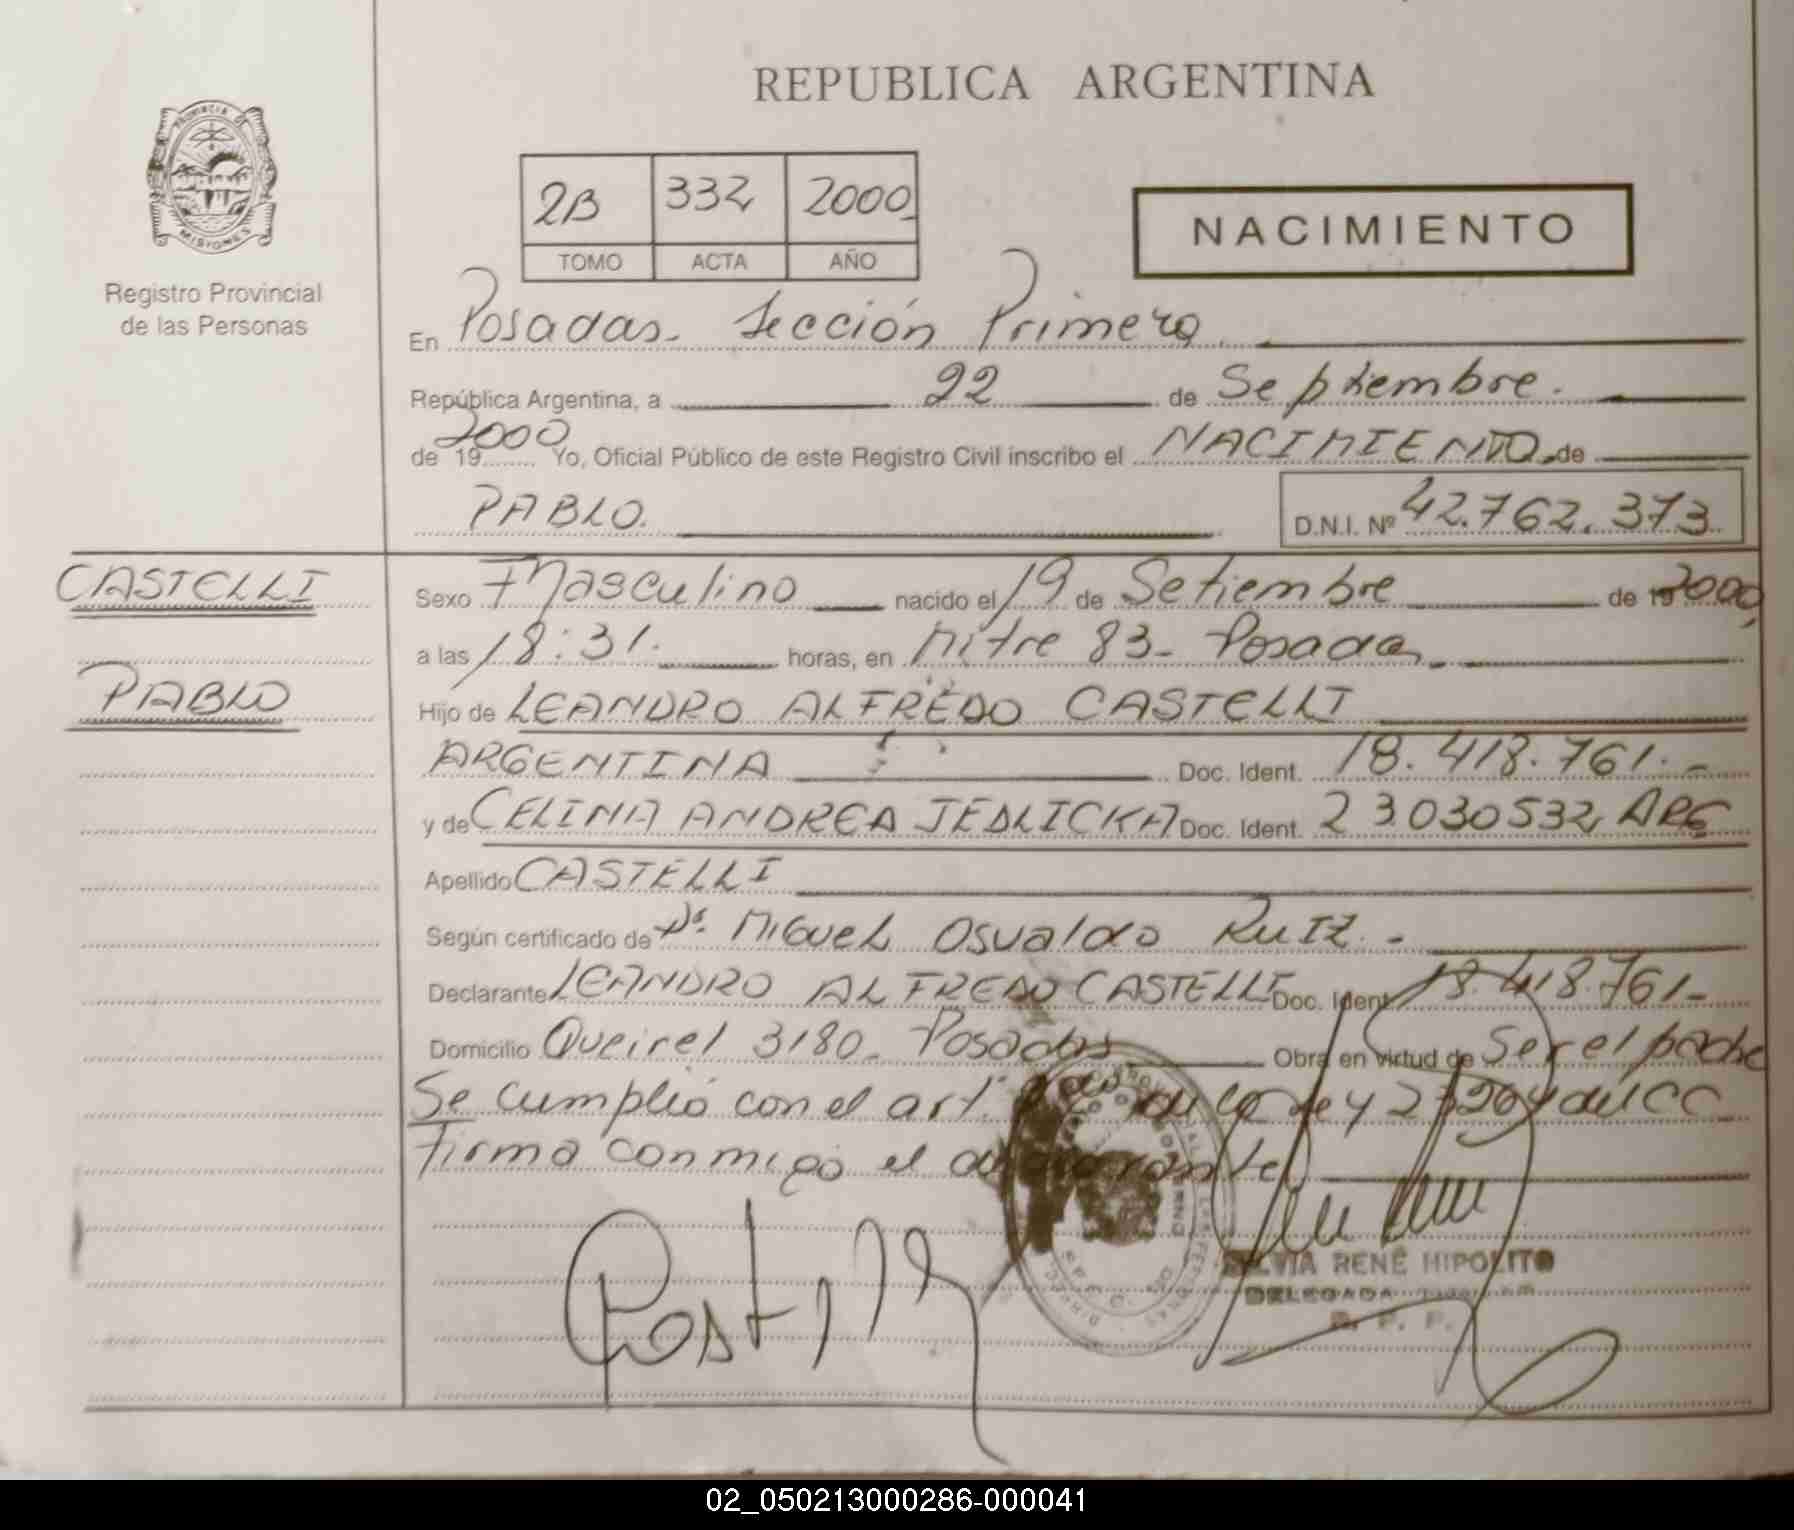 REPUBLICA ARGENTINA
PROVINCIA DE
MISIONES
Registro Provincial
de las Personas
2B 332 2000
TOMO ACTA AÑO
NACIMIENTO
En Posadas. Sección Primera
República Argentina, a 22 de Septiembre.
de 19 2000 Yo, Oficial Público de este Registro Civil inscribo el NACIMIENTO de
PABLO. D.N.I. Nº 42.762.373
CASTELLI
PABLO
Sexo Masculino nacido el 19 de Setiembre de 19 2000
a las 18:31. horas, en Mitre 83 - Posadas
Hijo de LEANDRO ALFREDO CASTELLI
ARGENTINA Doc. Ident. 18.418.761.-
y de CELINA ANDREA JEDLICKA Doc. Ident. 23030532 ARG
Apellido CASTELLI
Según certificado de Dr. Miguel Osvaldo Ruiz.-
Declarante LEANDRO ALFREDO CASTELLI Doc. Ident. 18.418.761-
Domicilio Queirel 3180 - Posadas Obra en virtud de Ser el padre
Se cumplió con el art. de la Ley del CC
firma conmigo el declarante
SILVIA RENÉ HIPOLITO
DELEGADA
R. P. P.
02_050213000286-000041